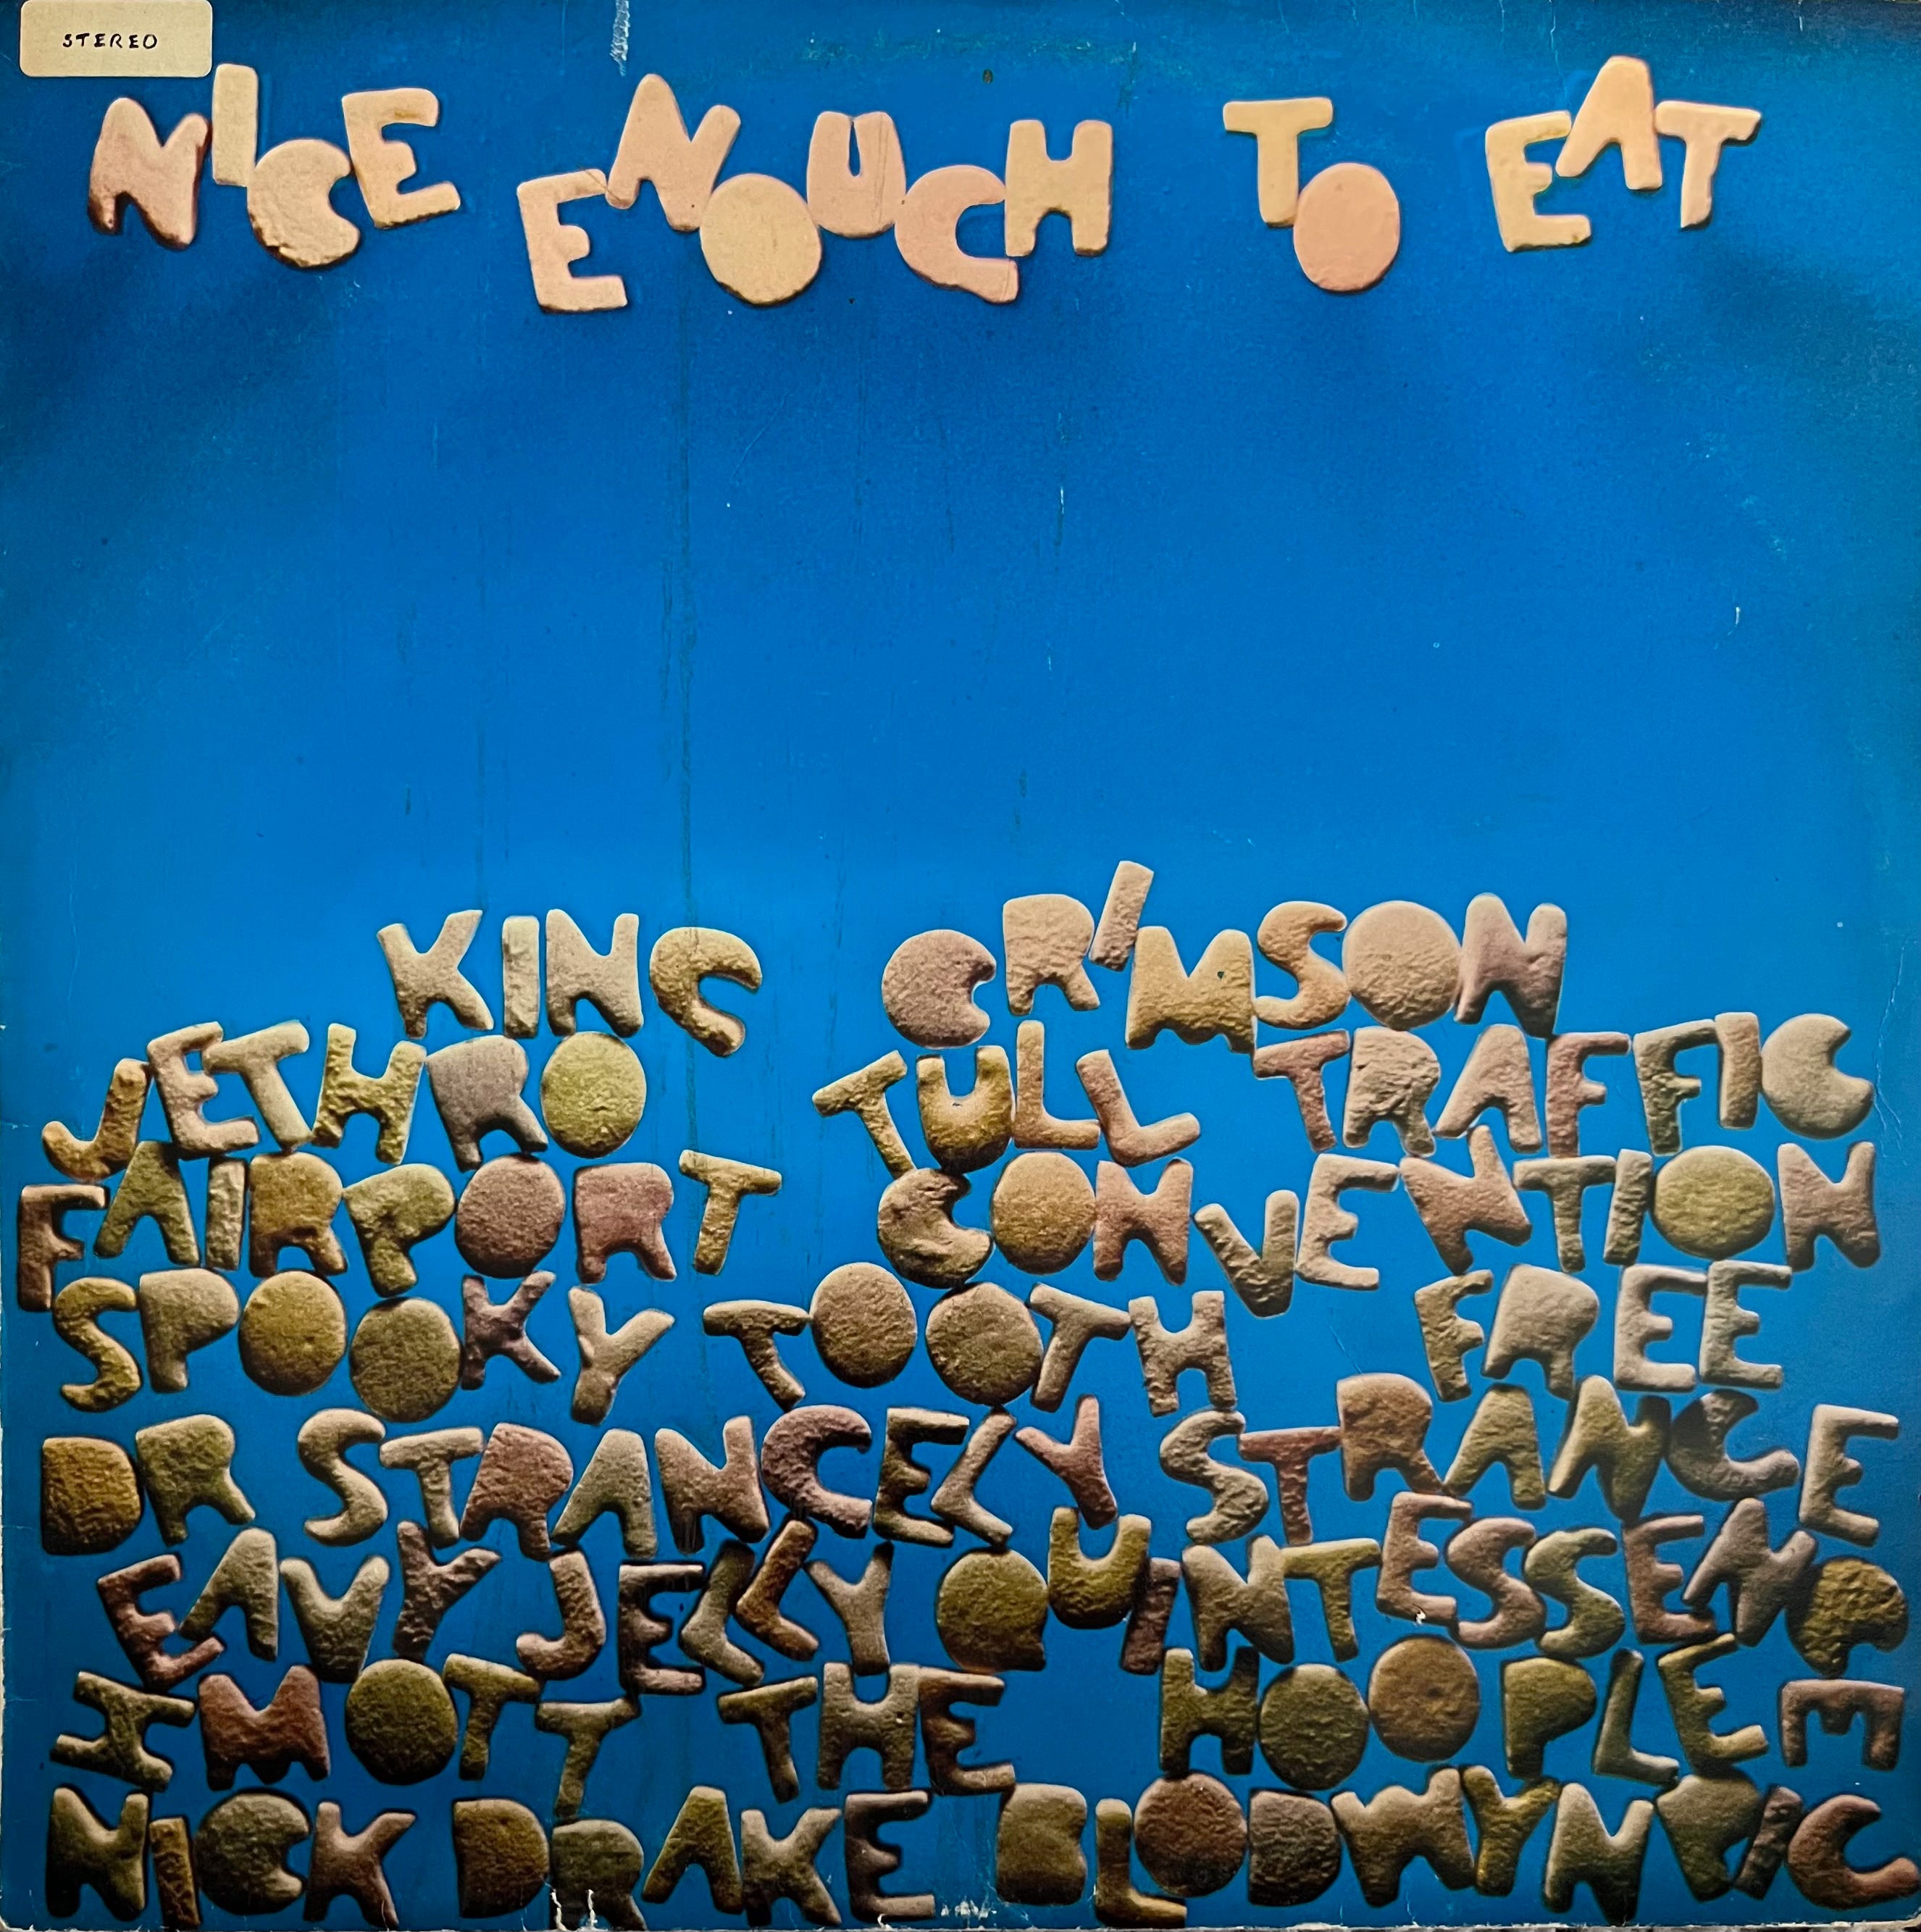 STEREO
NICE ENOUGH TO EAT
KING CRIMSON
JETHRO TULL TRAFFIC
FAIRPORT CONVENTION
SPOOKY TOOTH FREE
DR STRANGELY STRANGE
EAVY JELLY QUINTESSENC
H MOTT THE HOOPLE E
NICK DRAKE BLODWYN PIG